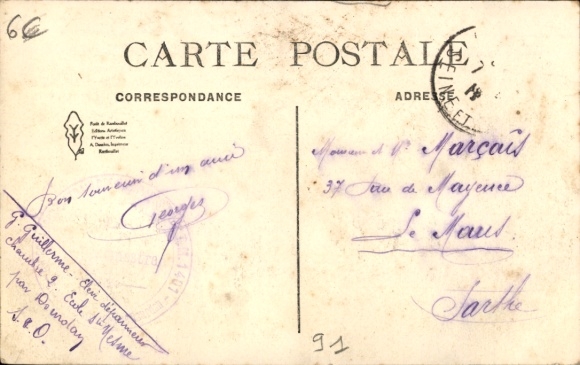 66
CARTE POSTALE
CORRESPONDANCE
ADRESSE
SEINE ET
Forêt de Rambouillet
Editions Artistiques
l'Yvette et l'Yveline
A. Douchin, Imprimeur
Rambouillet
Bon souvenir d'un ami
Georges
G. Guillerme - Elève dépanneur
Chambre 2. Ecole Ste Mesme
par Dourdan
S. & O.
Marçais
37 Rue de Mayence
Le Mans.
Sarthe
91